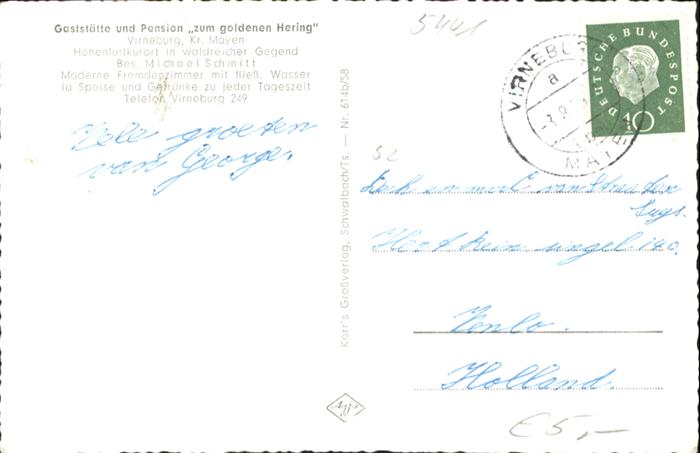 Gaststätte und Pension „zum goldenen Hering"
Virneburg, Kr. Mayen
Höhenluftkurort in waldreicher Gegend
Bes. Michael Schmitt
Moderne Fremdenzimmer mit fließ. Wasser
la Speise und Getränke zu jeder Tageszeit
Telefon Virneburg 249
Vele groeten
van George.
Korr's Großverlag, Schwalbach/Ts. — Nr. 614b/58
5441
VIRNEBURG
a
DEUTSCHE BUNDESPOST
10
52
van
singel 140.
Venlo.
Holland.
€5,-